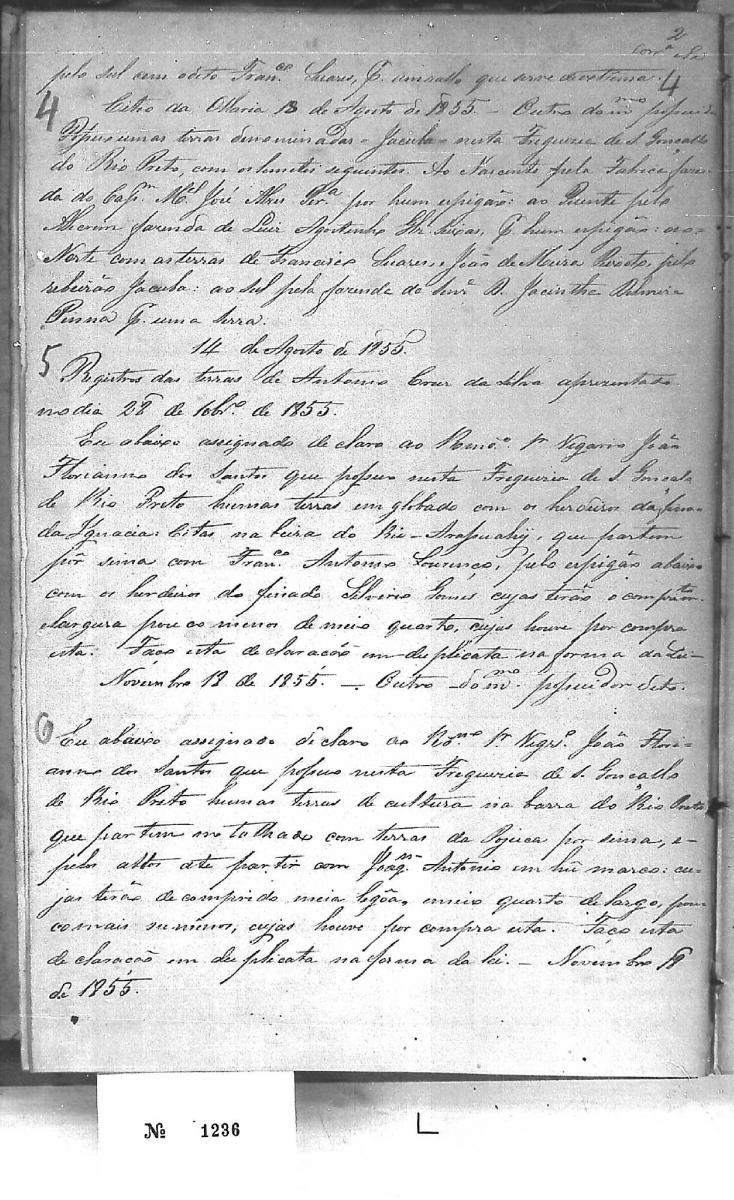 2
pelo sul com o dito Fran.co Soares, p. um vallo que serve de vertima. 4
4 Citio da Maria 13 de Agosto de 1855. — Outro do m.mo possuidor
Possuo umas terras denominadas = Jacuba = nesta Freguezia de S. Gonçallo
do Rio Preto, com os limites seguintes. Ao Nascente pela Fabrica fazen-
da do Cap.m M.el José Alves Per.a por hum espigão: ao Puente pelo
Alecrim fazenda de Luiz Agostinho p. hum espigão: ao
Norte com as terras de Francisco Soares, e João de Meira pelo
ribeirão Jacuba: ao sul pela fazenda do Snr. D. Jacintha
Penna p. uma serra.
14 de Agosto de 1855.
5 Registros das terras de Antonio Cruz da Silva aprezentado
no dia 28 de 1855.
Eu abaixo assignado declaro ao Rmo. Vigario João
Florianno dos Santos que possuo nesta Freguezia de S. Goncalo
de Rio Preto humas terras em globado com os herdeiros da fina-
da Ignacia: Citas na beira do Rio-Arasuahy, que partem
por sima com Fran.co Antonio Lourenço, pelo espigão abaixo
com os herdeiros do finado Silverio Gomes cujas terão o comprim.to
e largura pouco menos de meio quarto, cujas houve por compra
esta. Faço esta declaracão em duplicata na forma da Lei —
Novembro 18 de 1855. — Outro do m.mo possuidor dito.
6 Eu abaixo assignado declaro ao R.mo Vigr.o João Flori-
anno dos Santos que possuo nesta Freguezia de S. Goncallo
de Rio Preto humas terras de cultura na barra do Rio Preto
que partem no talhado com terras da Pojuca por sima, e
pelos altos até partir com Joaq.m Antonio em hũ marco: cu-
jas terão de comprido meia legôa, e meio quarto de largo, pou-
co mais ou minos, cujas houve por compra esta. Faço esta
declaracão em duplicata na forma da lei. — Novembro 18
de 1855.
Nº 1236
L